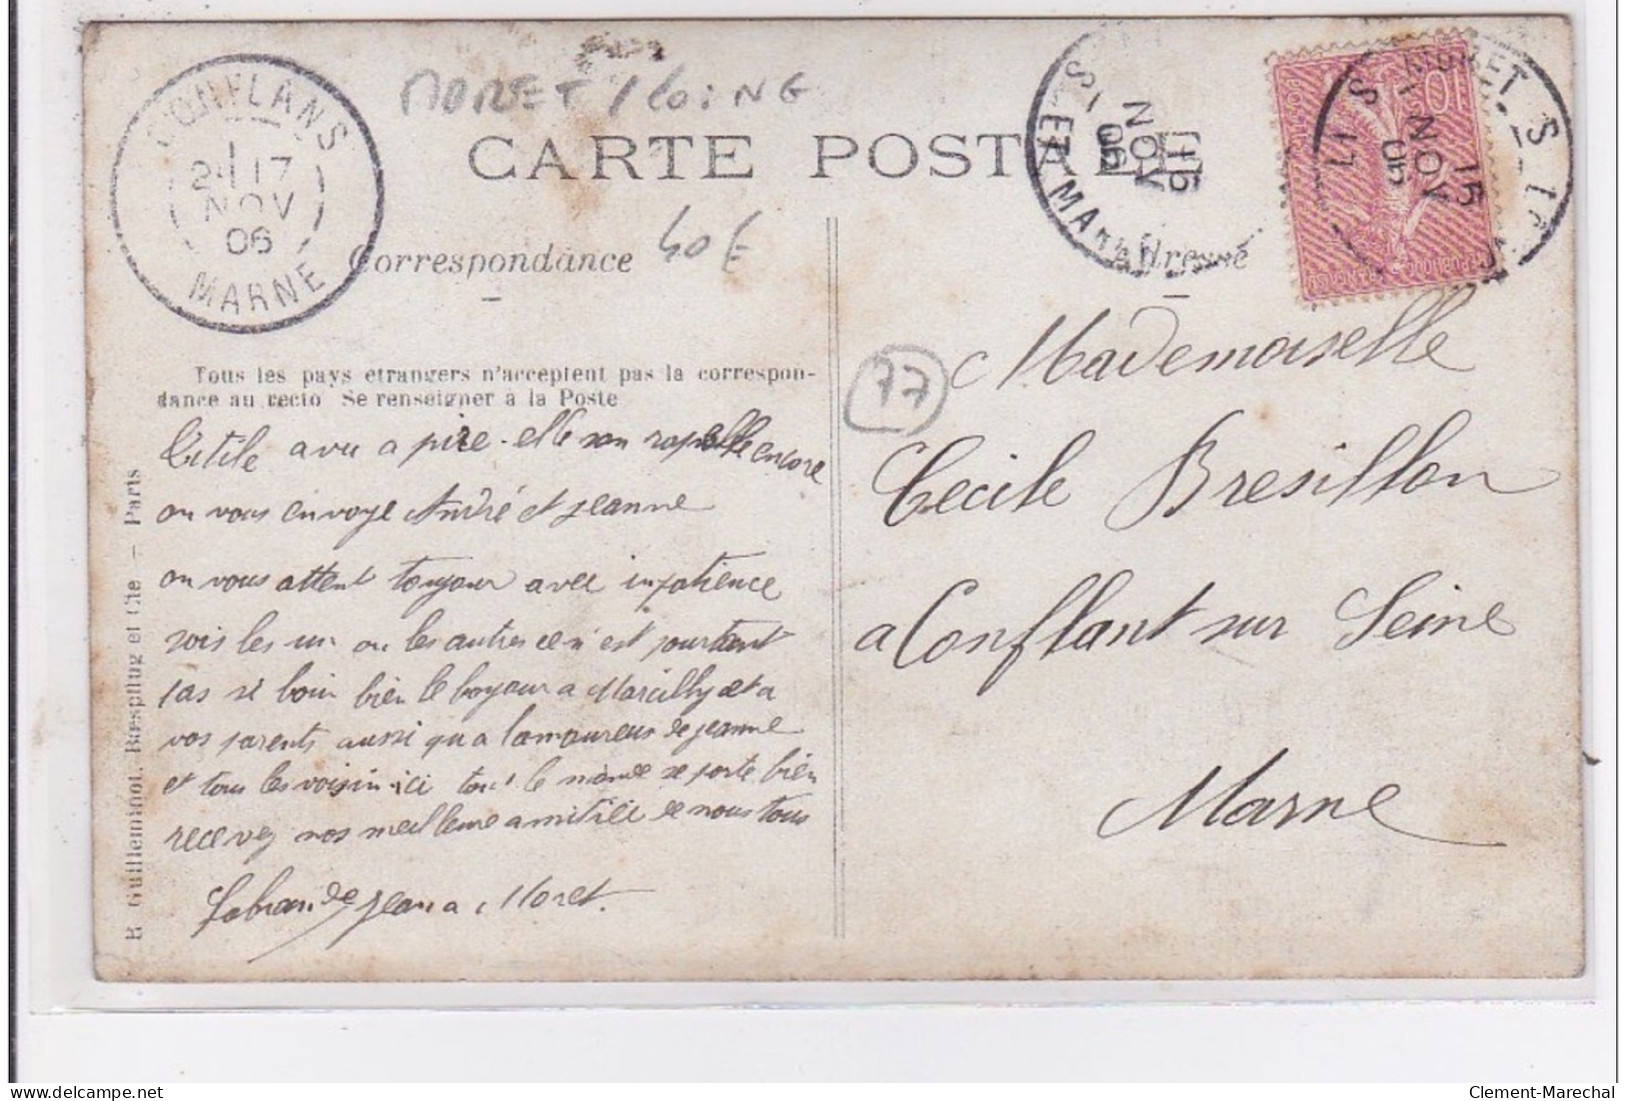 MORET / LOING
CARTE POSTALE
CONFLANS
24 17
NOV
06
MARNE
15
NOV
06
S
ET MAR
MORET S
15
NOV
10
Correspondance
40 E
Adresse
Tous les pays étrangers n'acceptent pas la correspon-
dance au recto Se renseigner à la Poste
77
R. Guilleminot, Bœspflug et Cie — Paris
avu a pire. elle san rapelle encore
on vous envoye André et jeanne
on vous attent toujour avec inpatience
sois les un ou les autres ce n'est pourtant
pas si loin bien le bonjour a Marcilly et a
vos parents aussi qu a l'amoureus de jeanne
et tous les voisin ici tout le monde se porte bien
recevez nos meilleure amitiée de nous tous
jean a Moret.
Mademoiselle
Cecile Bresillon
a Conflant sur Seine
Marne
Clement-Marechal | delcampe.net